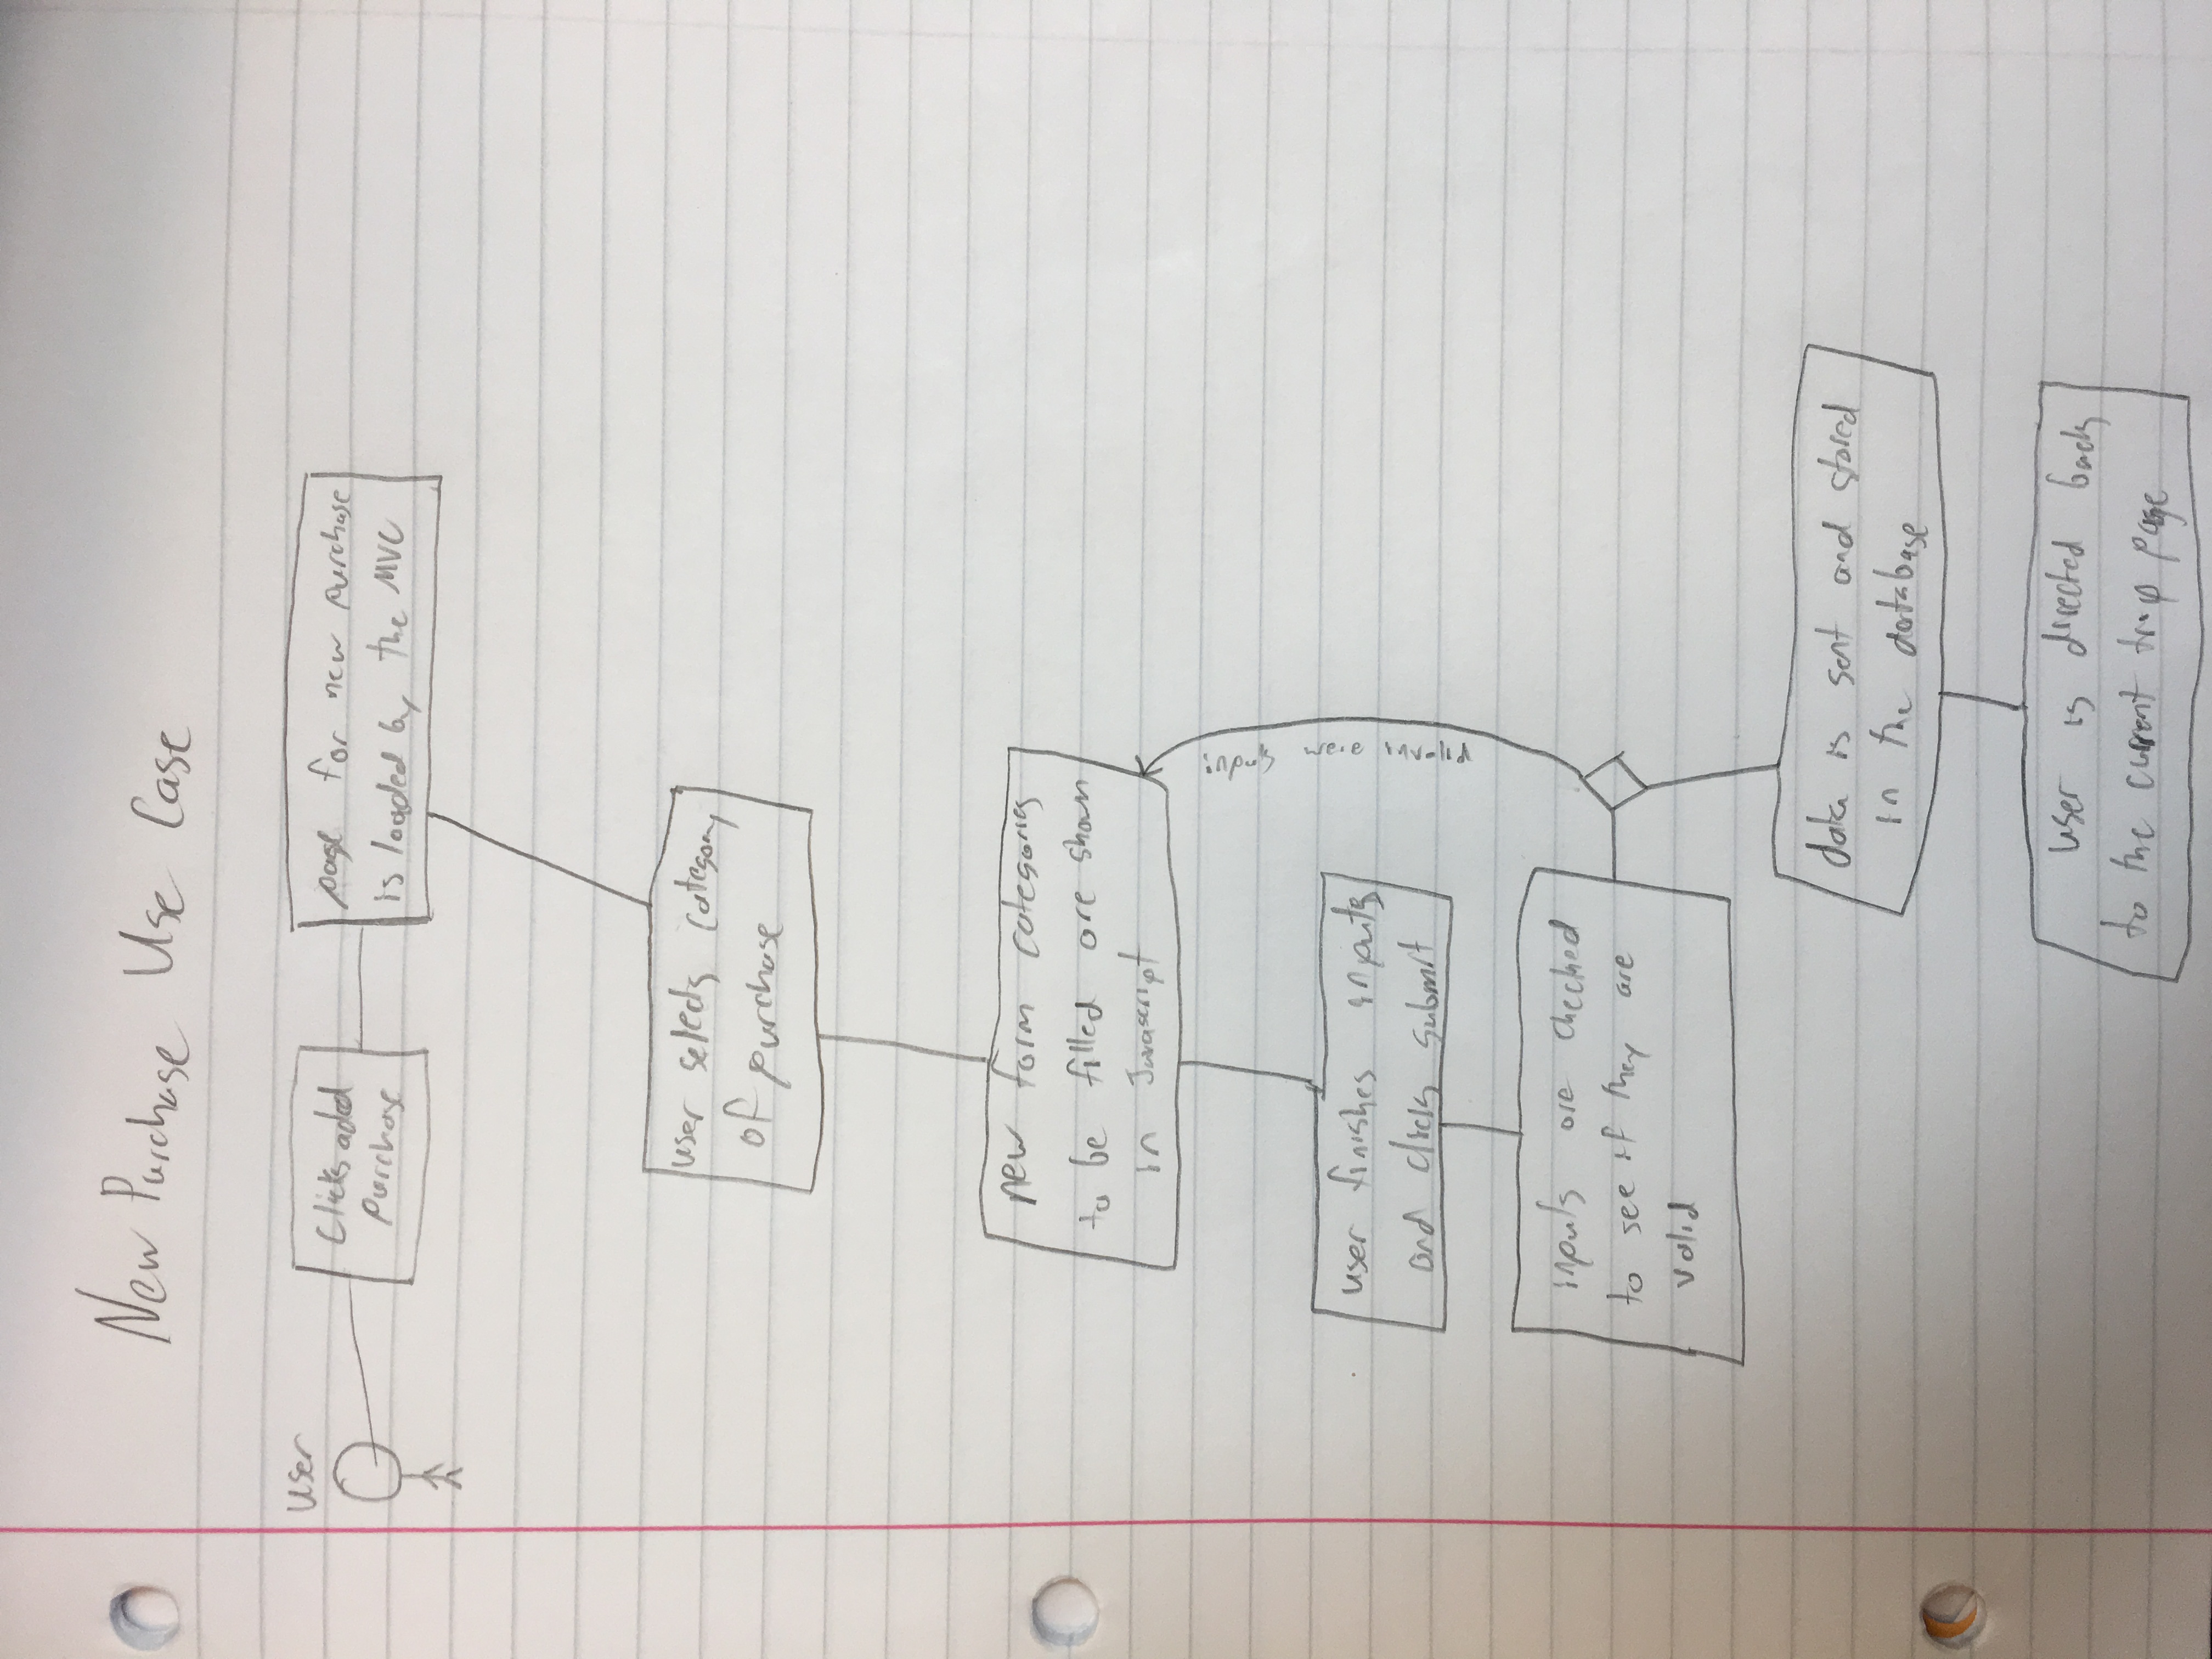 New Purchase Use Case
user
Clicks added
purchase
page for new purchase
is loaded by the MVC
user selects category
of purchase
new form categories
to be filled are shown
in Javascript
inputs were invalid
user finishes inputs
and clicks submit
inputs are checked
to see if they are
valid
data is sent and stored
in the database
user is directed back
to the current trip page